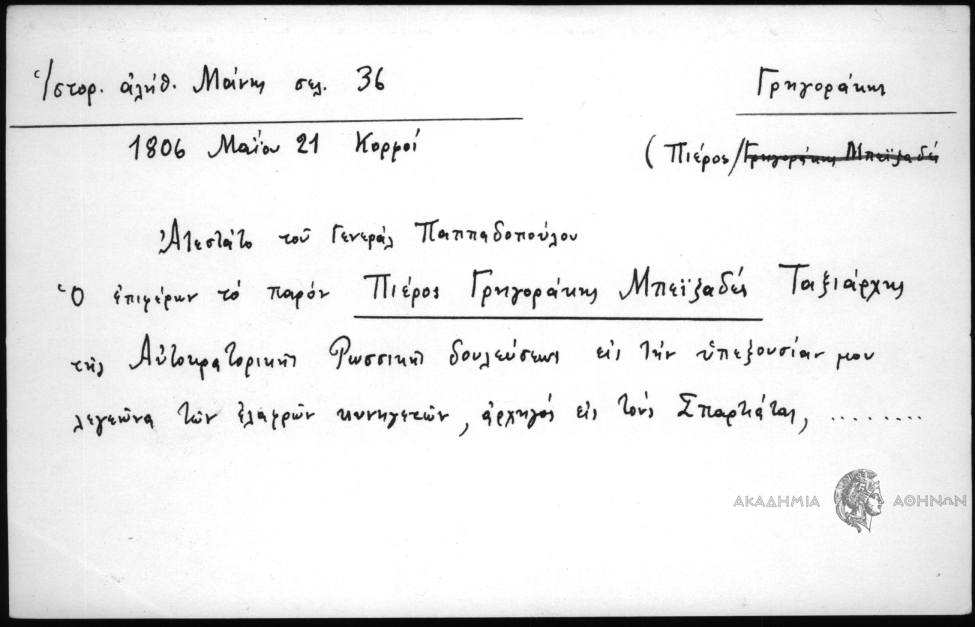 Ἱστορ. ἀλήθ. Μάνης σελ. 36
Γρηγοράκης
1806 Μαΐου 21 Κορφοί
(Πιέρος/Γρηγοράκης Μπεϊζαδές
Ἀτεστάτο τοῦ Γενεράλ Παππαδοπούλου
Ὁ ἐπιφέρων τό παρόν Πιέρος Γρηγοράκης Μπεϊζαδές Ταξιάρχης
τῆς Αὐτοκρατορικῆς Ρωσσικῆς δουλεύσεως εἰς τήν ὑπεξουσίαν μου
λεγεῶνα τῶν ἐλαφρῶν κυνηγετῶν, ἀρχηγός εἰς τούς Σπαρτιάτας, ........
ΑΚΑΔΗΜΙΑ ΑΘΗΝΩΝ